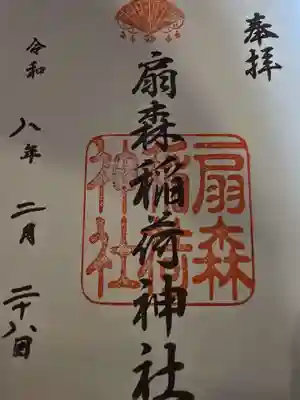 奉拝
扇森稲荷神社
扇森
稲荷
神社
令和
八年
二月
二十八日